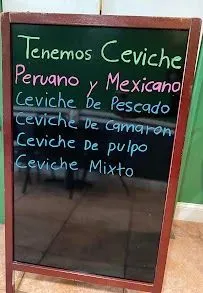 Tenemos Ceviche
Peruano y Mexicano
Ceviche De Pescado
Ceviche De Camaron
Ceviche de pulpo
Ceviche Mixto